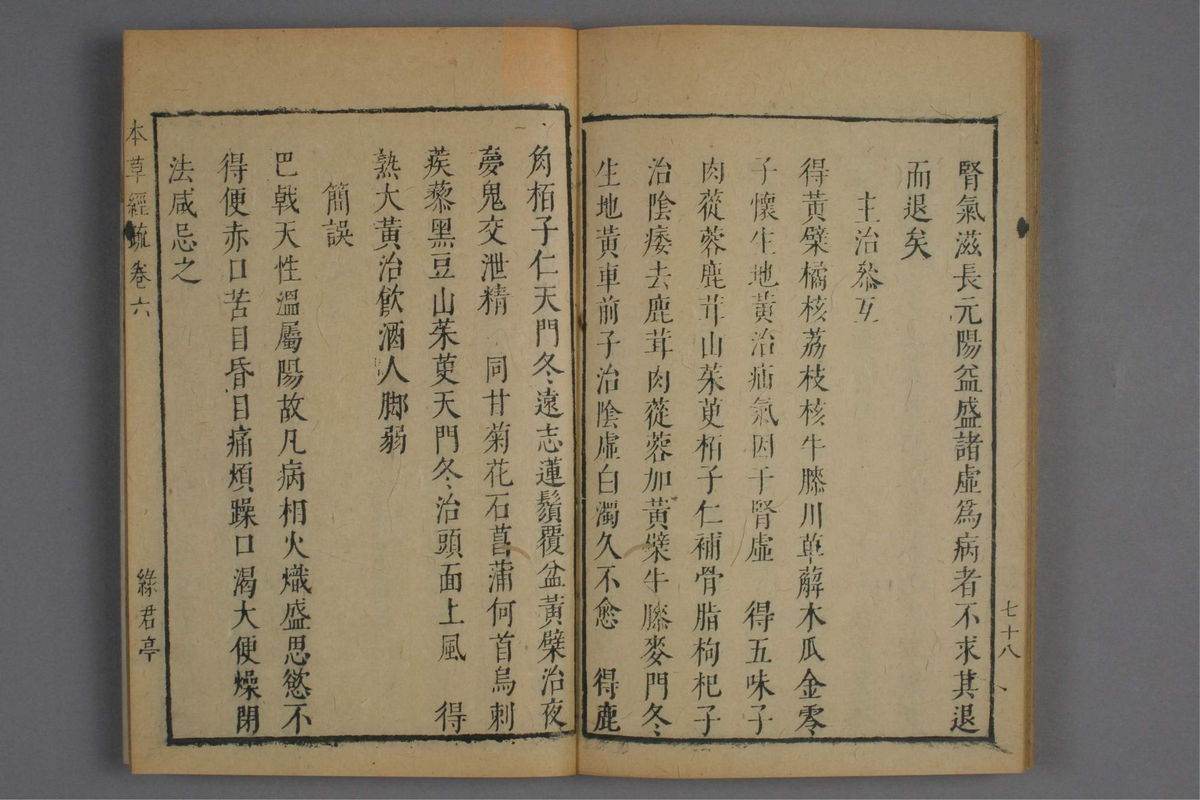 腎氣滋長元陽益盛諸虛爲病者不求其退
而退矣
主治叅互
得黃蘗橘核荔枝核牛膝川萆薢木瓜金零
子懷生地黃治疝氣因于腎虛　得五味子
肉蓯蓉鹿茸山茱萸栢子仁補骨脂枸杞子
治陰痿去鹿茸肉蓯蓉加黃蘗牛膝麥門冬
生地黃車前子治陰虛白濁久不愈　得鹿
七十八
角栢子仁天門冬遠志蓮鬚覆盆黃蘗治夜
夢鬼交泄精　同甘菊花石菖蒲何首烏刺
蒺藜黑豆山茱萸天門冬治頭面上風　得
熟大黃治飲酒人脚弱
簡誤
巴戟天性溫屬陽故凡病相火熾盛思慾不
得便赤口苦目昏目痛煩躁口渴大便燥閉
法咸忌之
本草經疏卷六
綠君亭